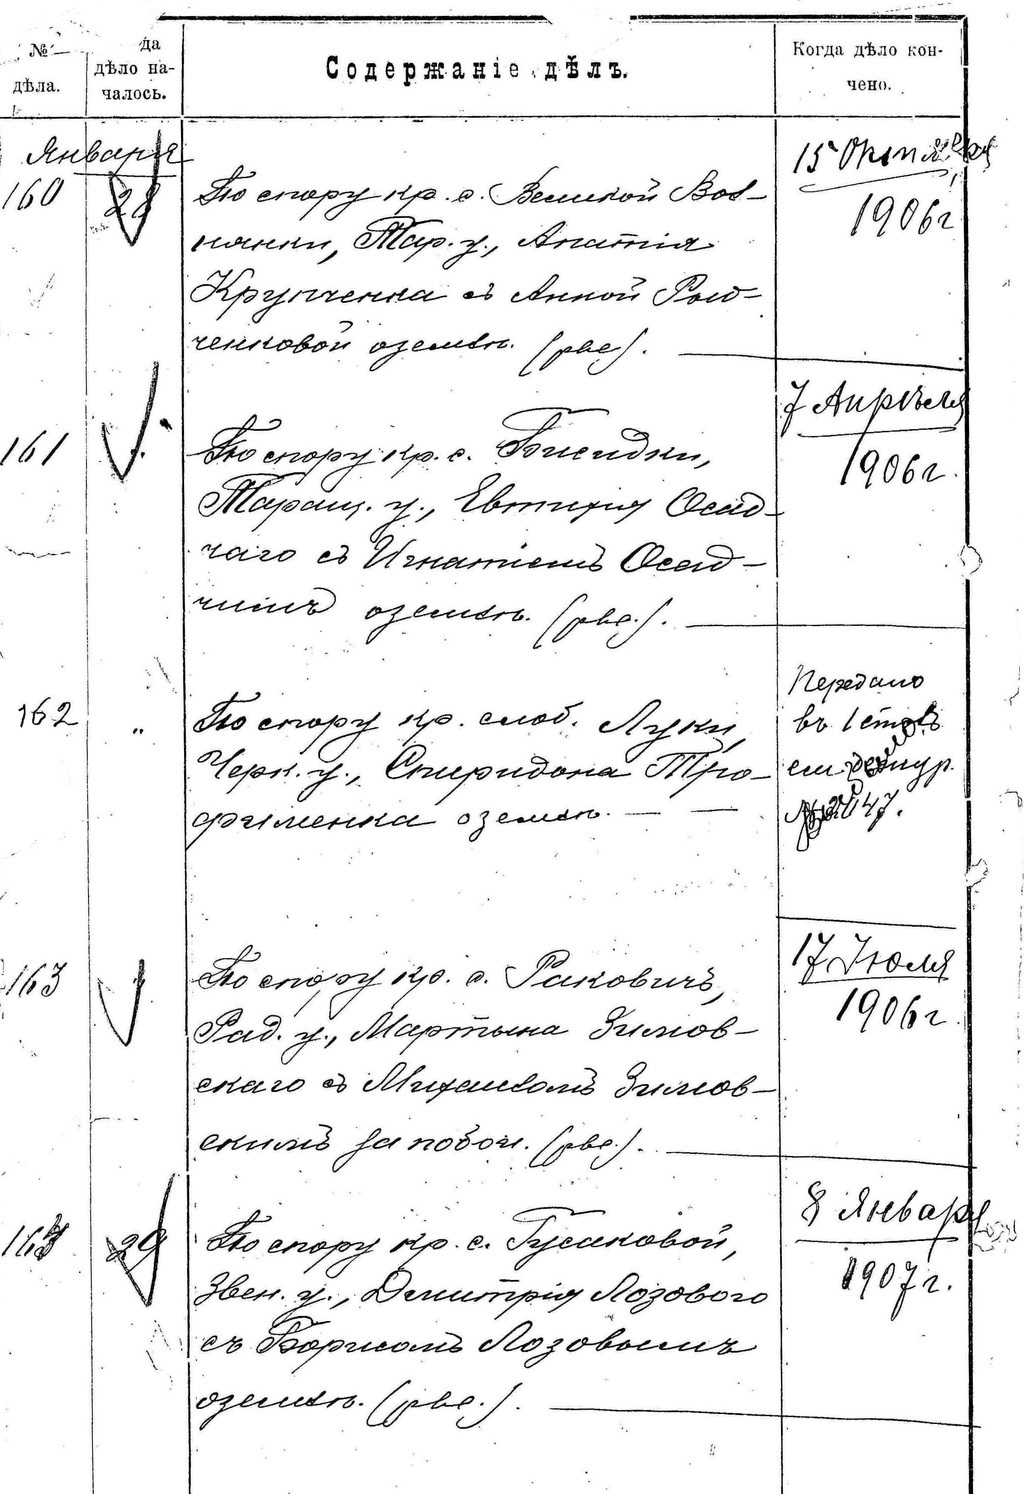 №
дѣла.
да
дѣло на-
чалось.
Содержаніе дѣлъ.
Когда дѣло кон-
чено.
Января
160 28
По спору кр. с. Великой Вов-
нянки, Тар. у., Ипатія
Крупченка съ Анной Рыб-
ченковой о земли. (рве).
15 Октября
1906 г
161
По спору кр. с. Бесидки,
Таращ. у., Евтихія Осад-
чаго съ Игнатіемъ Осад-
чимъ о земли. (рве.).
7 Апрѣля
1906 г.
162 "
По спору кр. слоб. Луки,
Черк. у., Спиридона Тро-
фименка о земли. — —
Передано
въ 1 столъ
47.
163
По спору кр. с. Раковичъ,
Рад. у., Мартына Зимов-
скаго съ Михаиломъ Зимов-
скимъ за побои. (рве.).
17 Июля
1906 г.
164 29
По спору кр. с. Гусаковой,
Звен. у., Дмитрія Лозового
съ Борисомъ Лозовымъ
о земли. (рве.).
8 Января
1907 г.